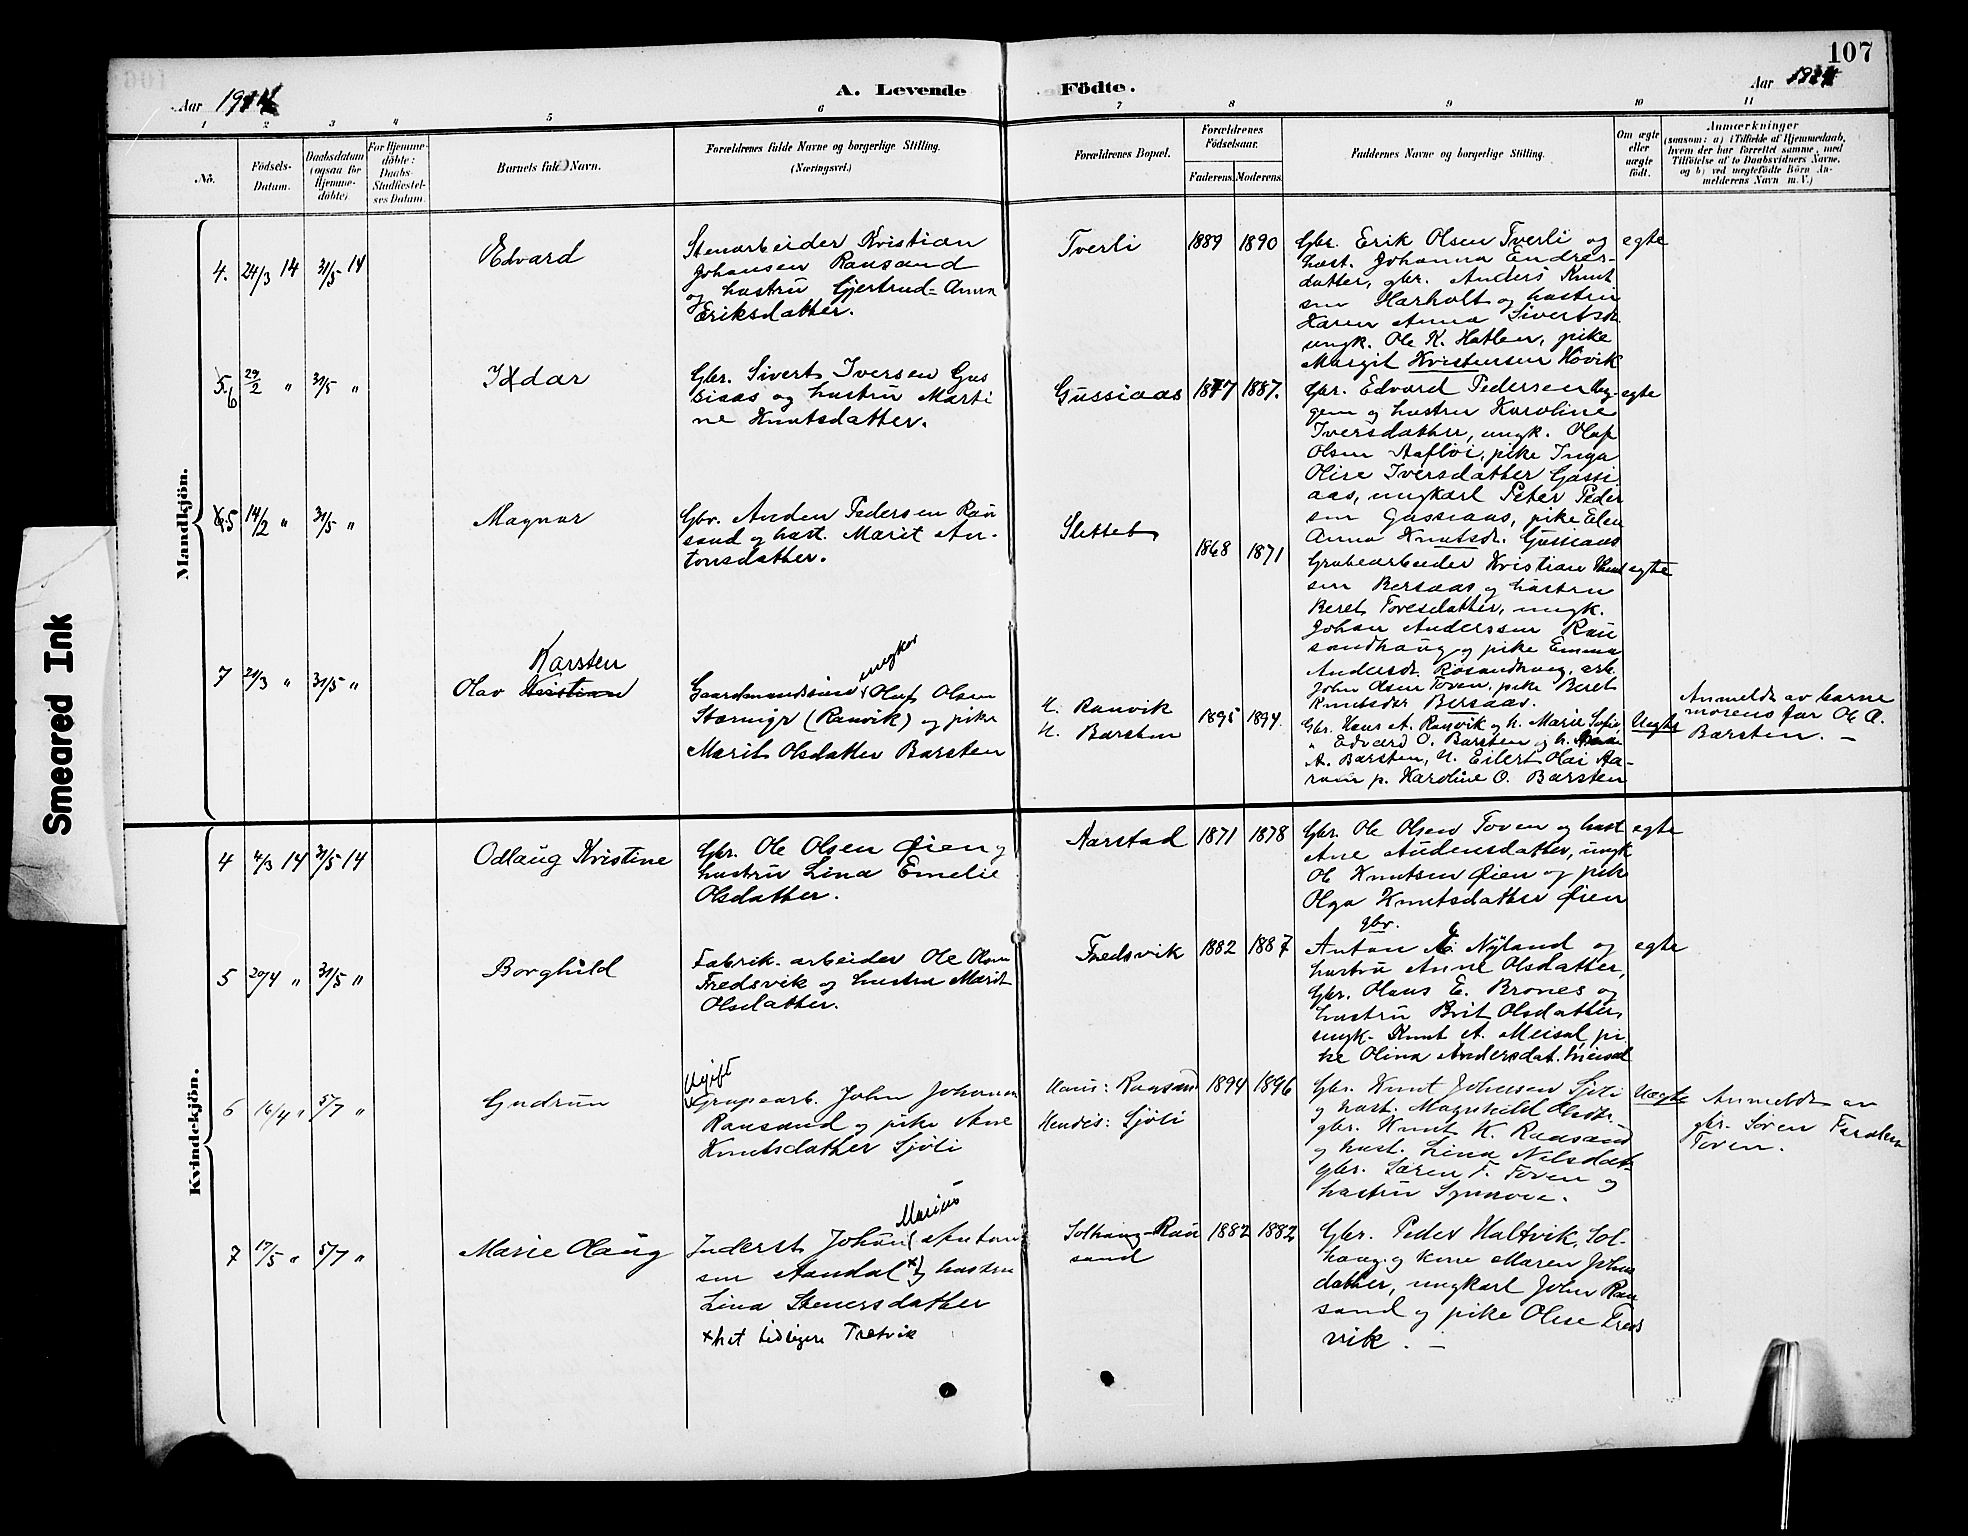 107
Aar 1914
A. Levende
Födte.
Aar 1914
1 2 3 4 5 6 7 8 9 10 11
No.
Födsels-
Datum.
Daabsdatum
(ogsaa for
Hjemme-
döbte).
For Hjemme-
döbte:
Daabs-
Stadfæstel-
ses Datum.
Barnets fulde Navn.
Forældrenes fulde Navne og borgerlige Stilling.
(Næringsvei.)
Forældrenes Bopæl.
Forældrenes
Födselsaar.
Faderens. Moderens.
Faddernes Navne og borgerlige Stilling.
Om ægte
eller
uægte
födt.
Anmærkninger
(saasom: a) i Tilfælde af Hjemmedaab,
hvem der har forrettet samme, med
Tilföielse af to Daabsvidners Navne,
og b) ved uægtefödte Börn An-
melderens Navn m. V.)
Mandkjön.
4. 24/3 14 31/5 14
Edvard
Stenarbeider Kristian
Johansen Rausand
og hustru Gjertrud-Anna
Eriksdatter.
Tverli
1889 1890
Gbr. Erik Olsen Tverli og
hust. Johanna Endres-
datter, gbr. Anders Knut
sen Harholt og hustru
Karen Anna Sivertsdr.
ungk. Ole K. Hatlen, pike
Margit Kristensen Hovik
egte
6 29/2 " 31/5 "
Ildar
Gbr. Sivert Iversen Gus
siaas og hustru Marti
ne Knutsdatter.
Gussiaas
1877 1887.
Gbr. Edvard Pedersen
gem og hustru Karoline
Iversdatter, ungk. Olaf
Olsen Aafløi, pike Inga
Olise Iversdatter Gussi
aas, ungkarl Peter Peder
sen Gussiaas, pike Elen
Anna Knutsdr. Gussiaas
egte
5 14/2 " 31/5 "
Magnar
Gbr. Anders Pedersen Rau
sand og hust. Marit An-
tonsdatter.
Slettet
1868 1871
Grubearbeider Kristian
sen Bersaas og hustru
Beret Toresdatter, ungk.
Johan Anderssen Rau
sandhaug og pike Emma
Andersdr. Rosandhaug, arb.
John Olsen Toven, pike Beret
Knutsdtr Bersaas.
egte
7 31/5 "
Karsten
Olav Kristian
ungkar
Gaardmandssøn Olaf Olsen
(Ranvik) og pike
Marit Olsdatter Barsten
H. Ranvik
H. Barsten
1895 1894.
Gbr. Hans A. Ranvik og h. Marie Sofie,
" Edvard O. Barsten og h.
A. Barsten, U. Eilert Olai Aa-
ram p. Karoline O. Barsten
Uegte
Anmeldt av barne
morens far Ole A.
Barsten. —
Kvindekjön.
4 4/3 14 31/5 14
Odlaug Kristine
Gbr. Ole Olsen Øien og
hustru Lina Emelie
Olsdatter.
Aarstad
1871 1878
Gbr. Ole Olsen Toven og hust
Ane Andersdatter, ungk
Ole Knutsen Øien og pike
Olga Knutsdatter Øien
egte
5 20/4 " 31/5 "
Borghild
Fabrik-arbeider Ole Olsen
Fredsvik og hustru Marit
Olsdatter.
Fredsvik
1882 1887
gbr.
Anton Nyland og
hustru Anne Olsdatter,
Gbr. Olaus E. Brones og
hustru Brit Olsdatter,
ungk- Knut A. Meisal, pi
ke Olina Andersdat. Meisal
egte
6 16/4 " 5/7 "
Gudrun
Ugift
Grubearb. John Johansen
Rausand og pike Ane
Knutsdatter Sjøli
Hans: Rausand
Hendes: Sjøli
1894 1896
Gbr. Knut Johnsen Sjøli
og hust. Magnhild Olsdtr.
gbr. Knut K. Rausand
og hust. Lina Nilsdat-
gbr. Søren F. Toven og
hustru Synnøve.
Uegte
Anmeldt av
gbr. Søren
Toven.
7 17/5 " 5/7 "
Marie Olaug
Marius
Inderst Johan Anton
sen Aandal x) og hustru
Lina Stenersdatter
x het tidligere Trætvik
Solhaug-Rau
sand
1882 1882
Gbr. Peder Haltvik, Sol-
haug og kone Maren Johns
datter, ungkarl John Rau
sand og pike Olise Freds
vik. —
Smeared Ink